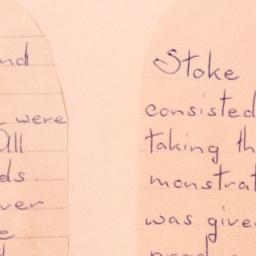 nd
were
All
ds.
ver
e
Stoke
consisted
taking th
monstrat
was give